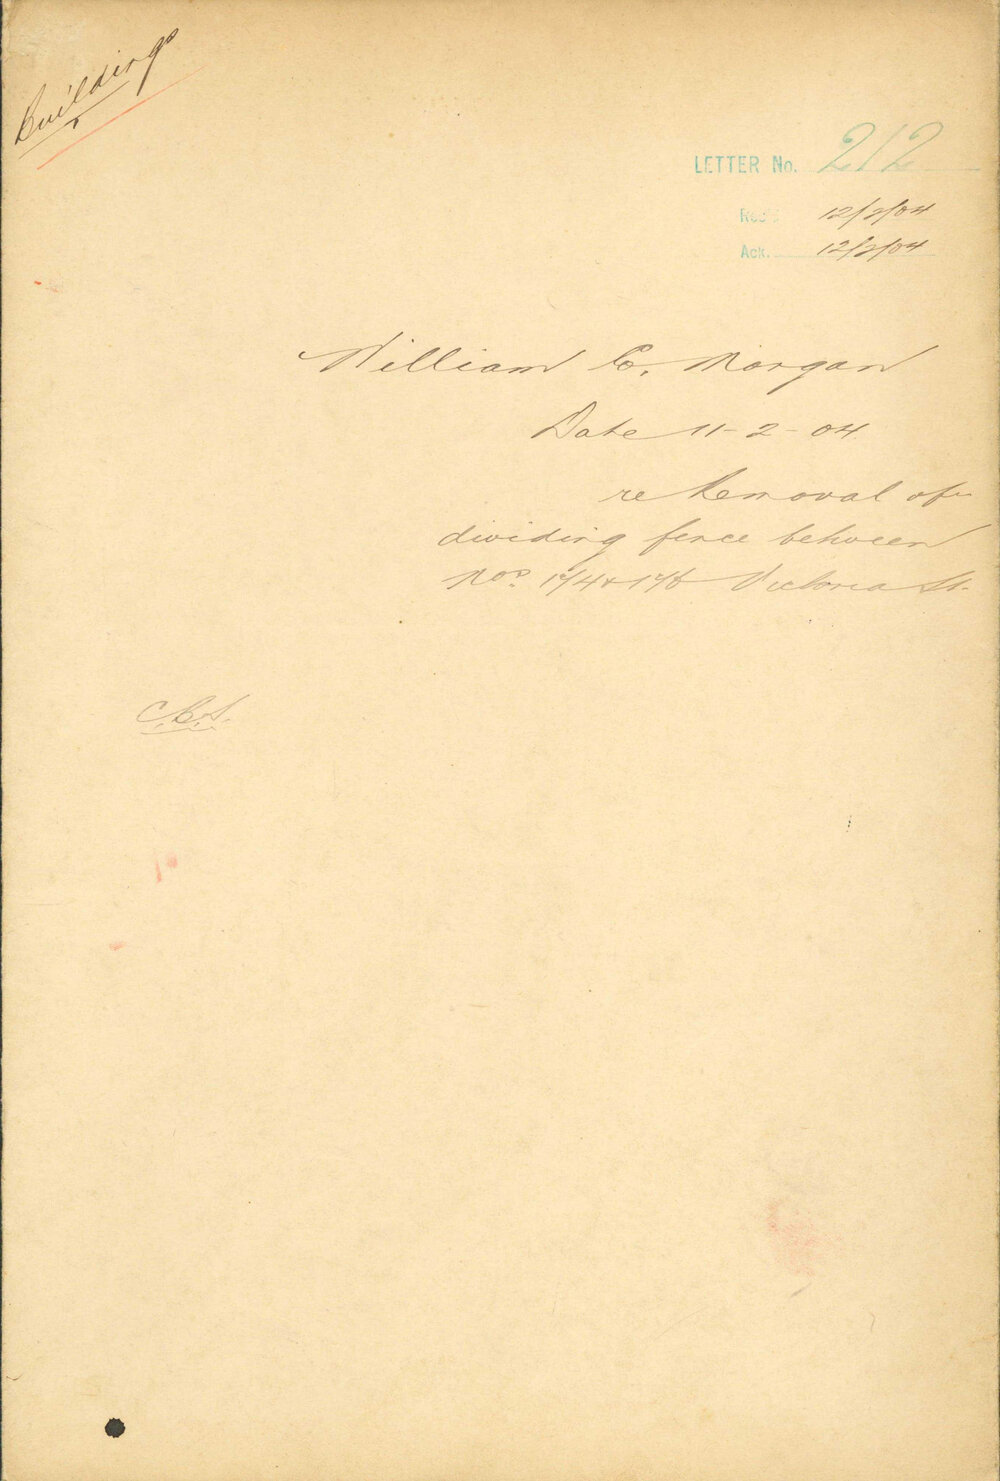 Buildings
LETTER No. 212
Rec'd 12/2/04
Ack. 12/2/04
William C. Morgan
Date 11-2-04
re Removal of
dividing fence between
Nos. 174 & 176 Victoria St.
C.B.S.